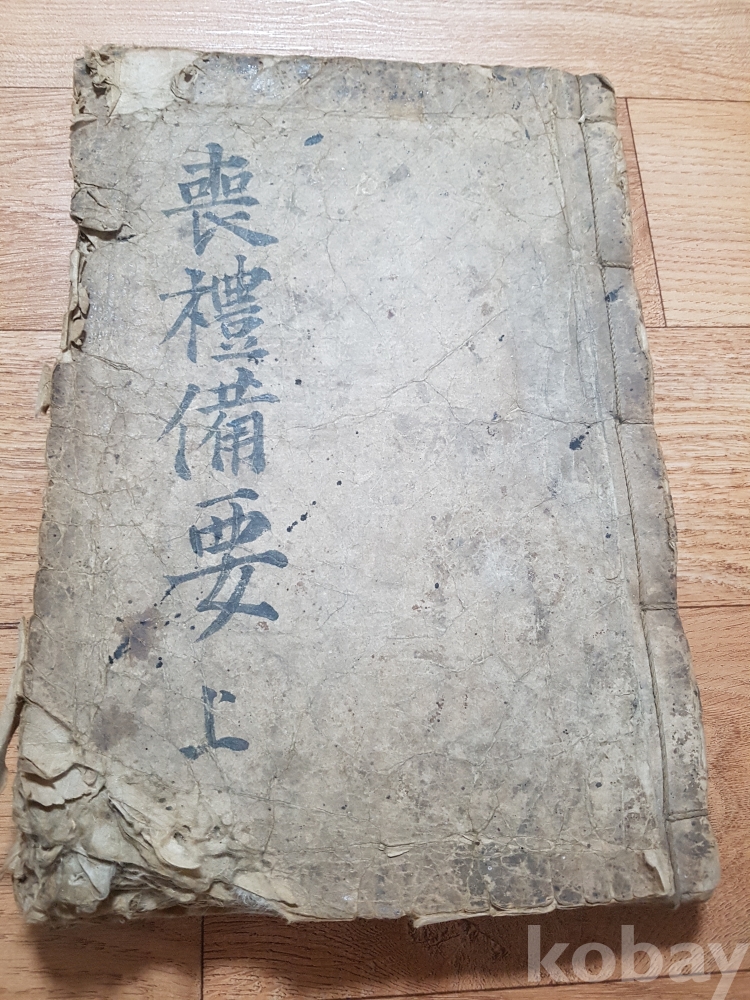 喪禮備要 上
kobay